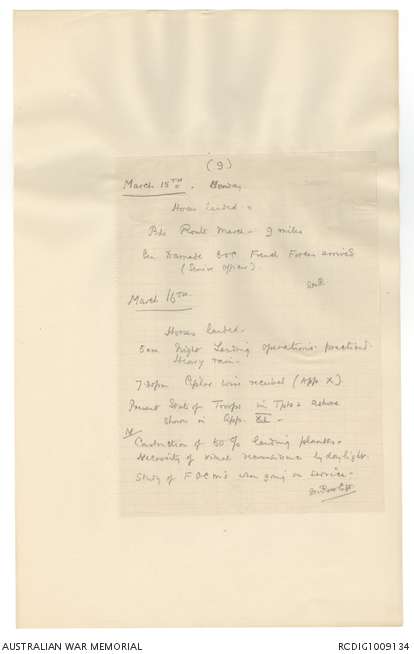 (9)
March 15TH. Monday
Horses landed.
Bde Route March - 9 miles
Gen Damade G.O.C. French Forces arrived
(Senior officer).
March 16TH.
Horses landed.
5 am Night Landing operations practised.
Heavy rain.
7.30pm Cipher wire received (App X).
Present State of Troops in Tpts & ashore
shown in App.
Construction of 50% landing
Necessity of visual reconnaissance by daylight.
Study of F.O.C. when going on service.
AUSTRALIAN WAR MEMORIAL
RCDIG1009134